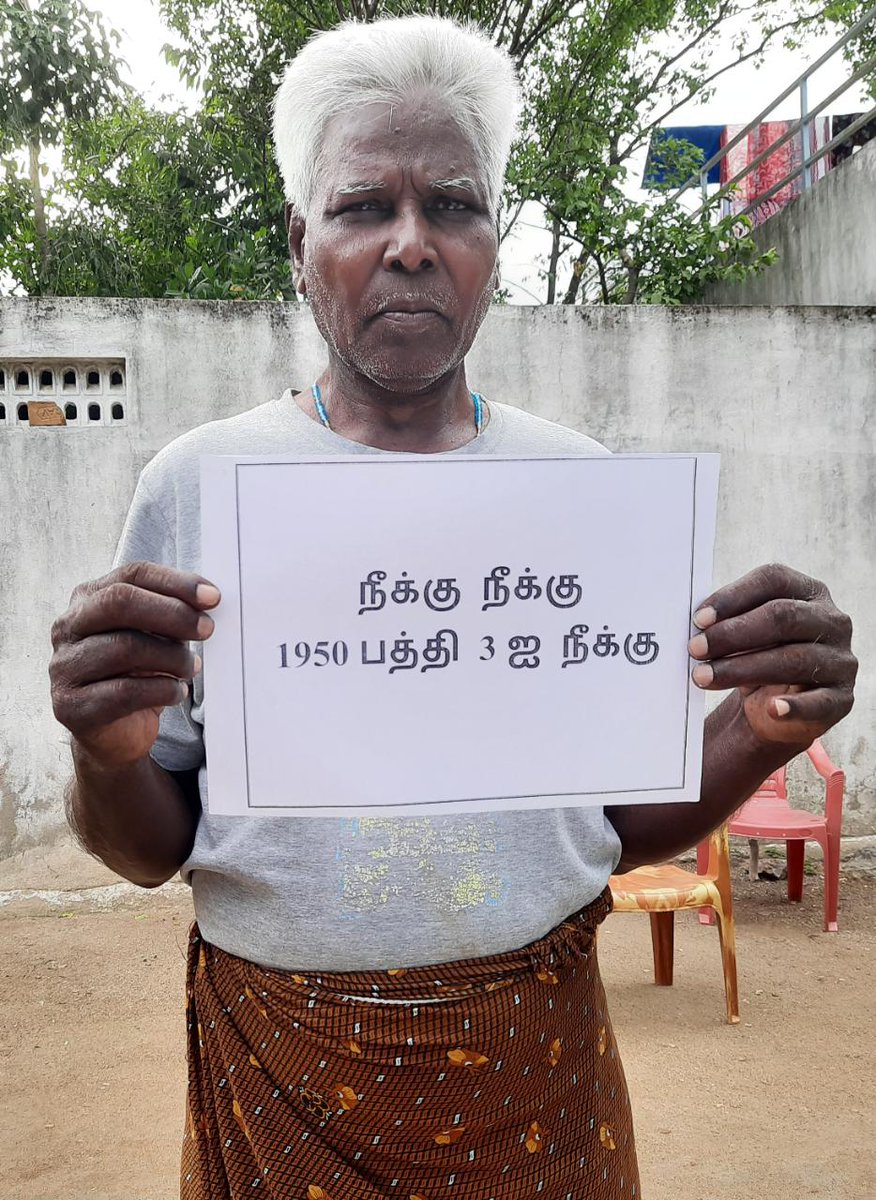 நீக்கு நீக்கு
1950 பத்தி 3 ஐ நீக்கு